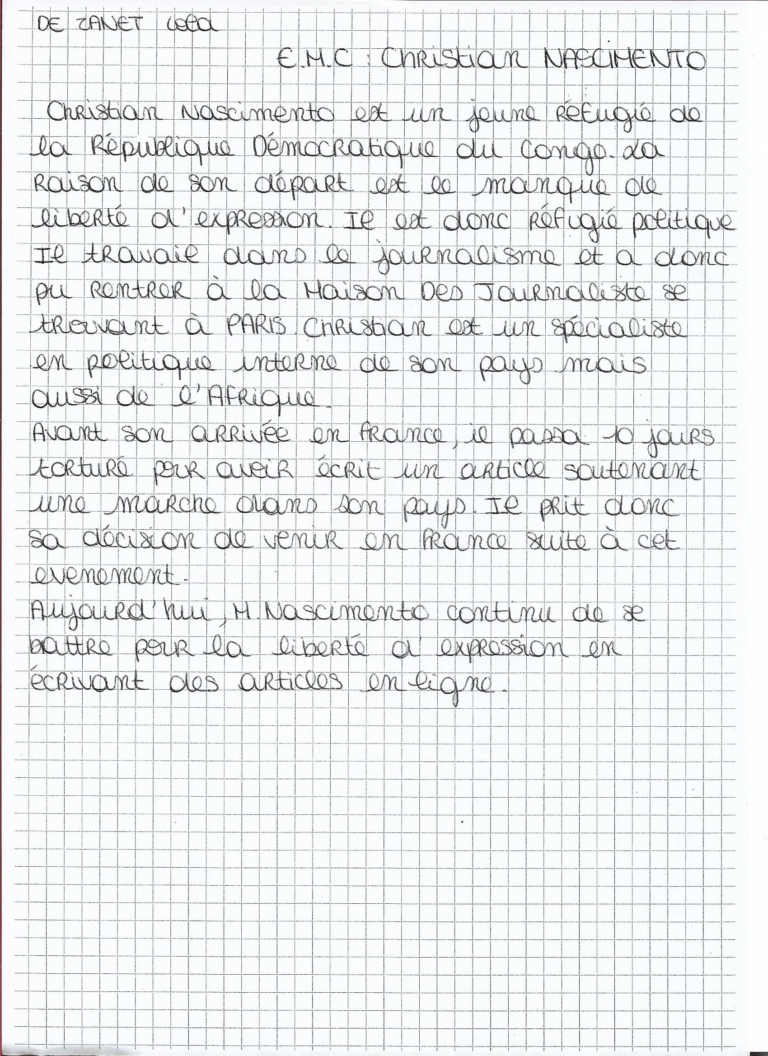 DE ZANET Lola
E.M.C : Christian NASCIMENTO
Christian Nascimento est un jeune Réfugié de
la République Démocratique du Congo. La
Raison de son départ est le manque de
liberté d'expression. Il est donc Réfugié politique
Il travaie dans le journalisme et a donc
pu Rentrer à la Maison Des Journaliste se
trouvant à PARIS. Christian est un spécialiste
en politique interne de son pays mais
aussi de l'Afrique.
Avant son arrivée en France, il passa 10 jours
torturé pour avoir écrit un article soutenant
une marche dans son pays. Il prit donc
sa décision de venir en France suite à cet
evenement.
Aujourd'hui, M. Nascimento continu de se
battre pour la liberté d'expression en
écrivant des articles en ligne.